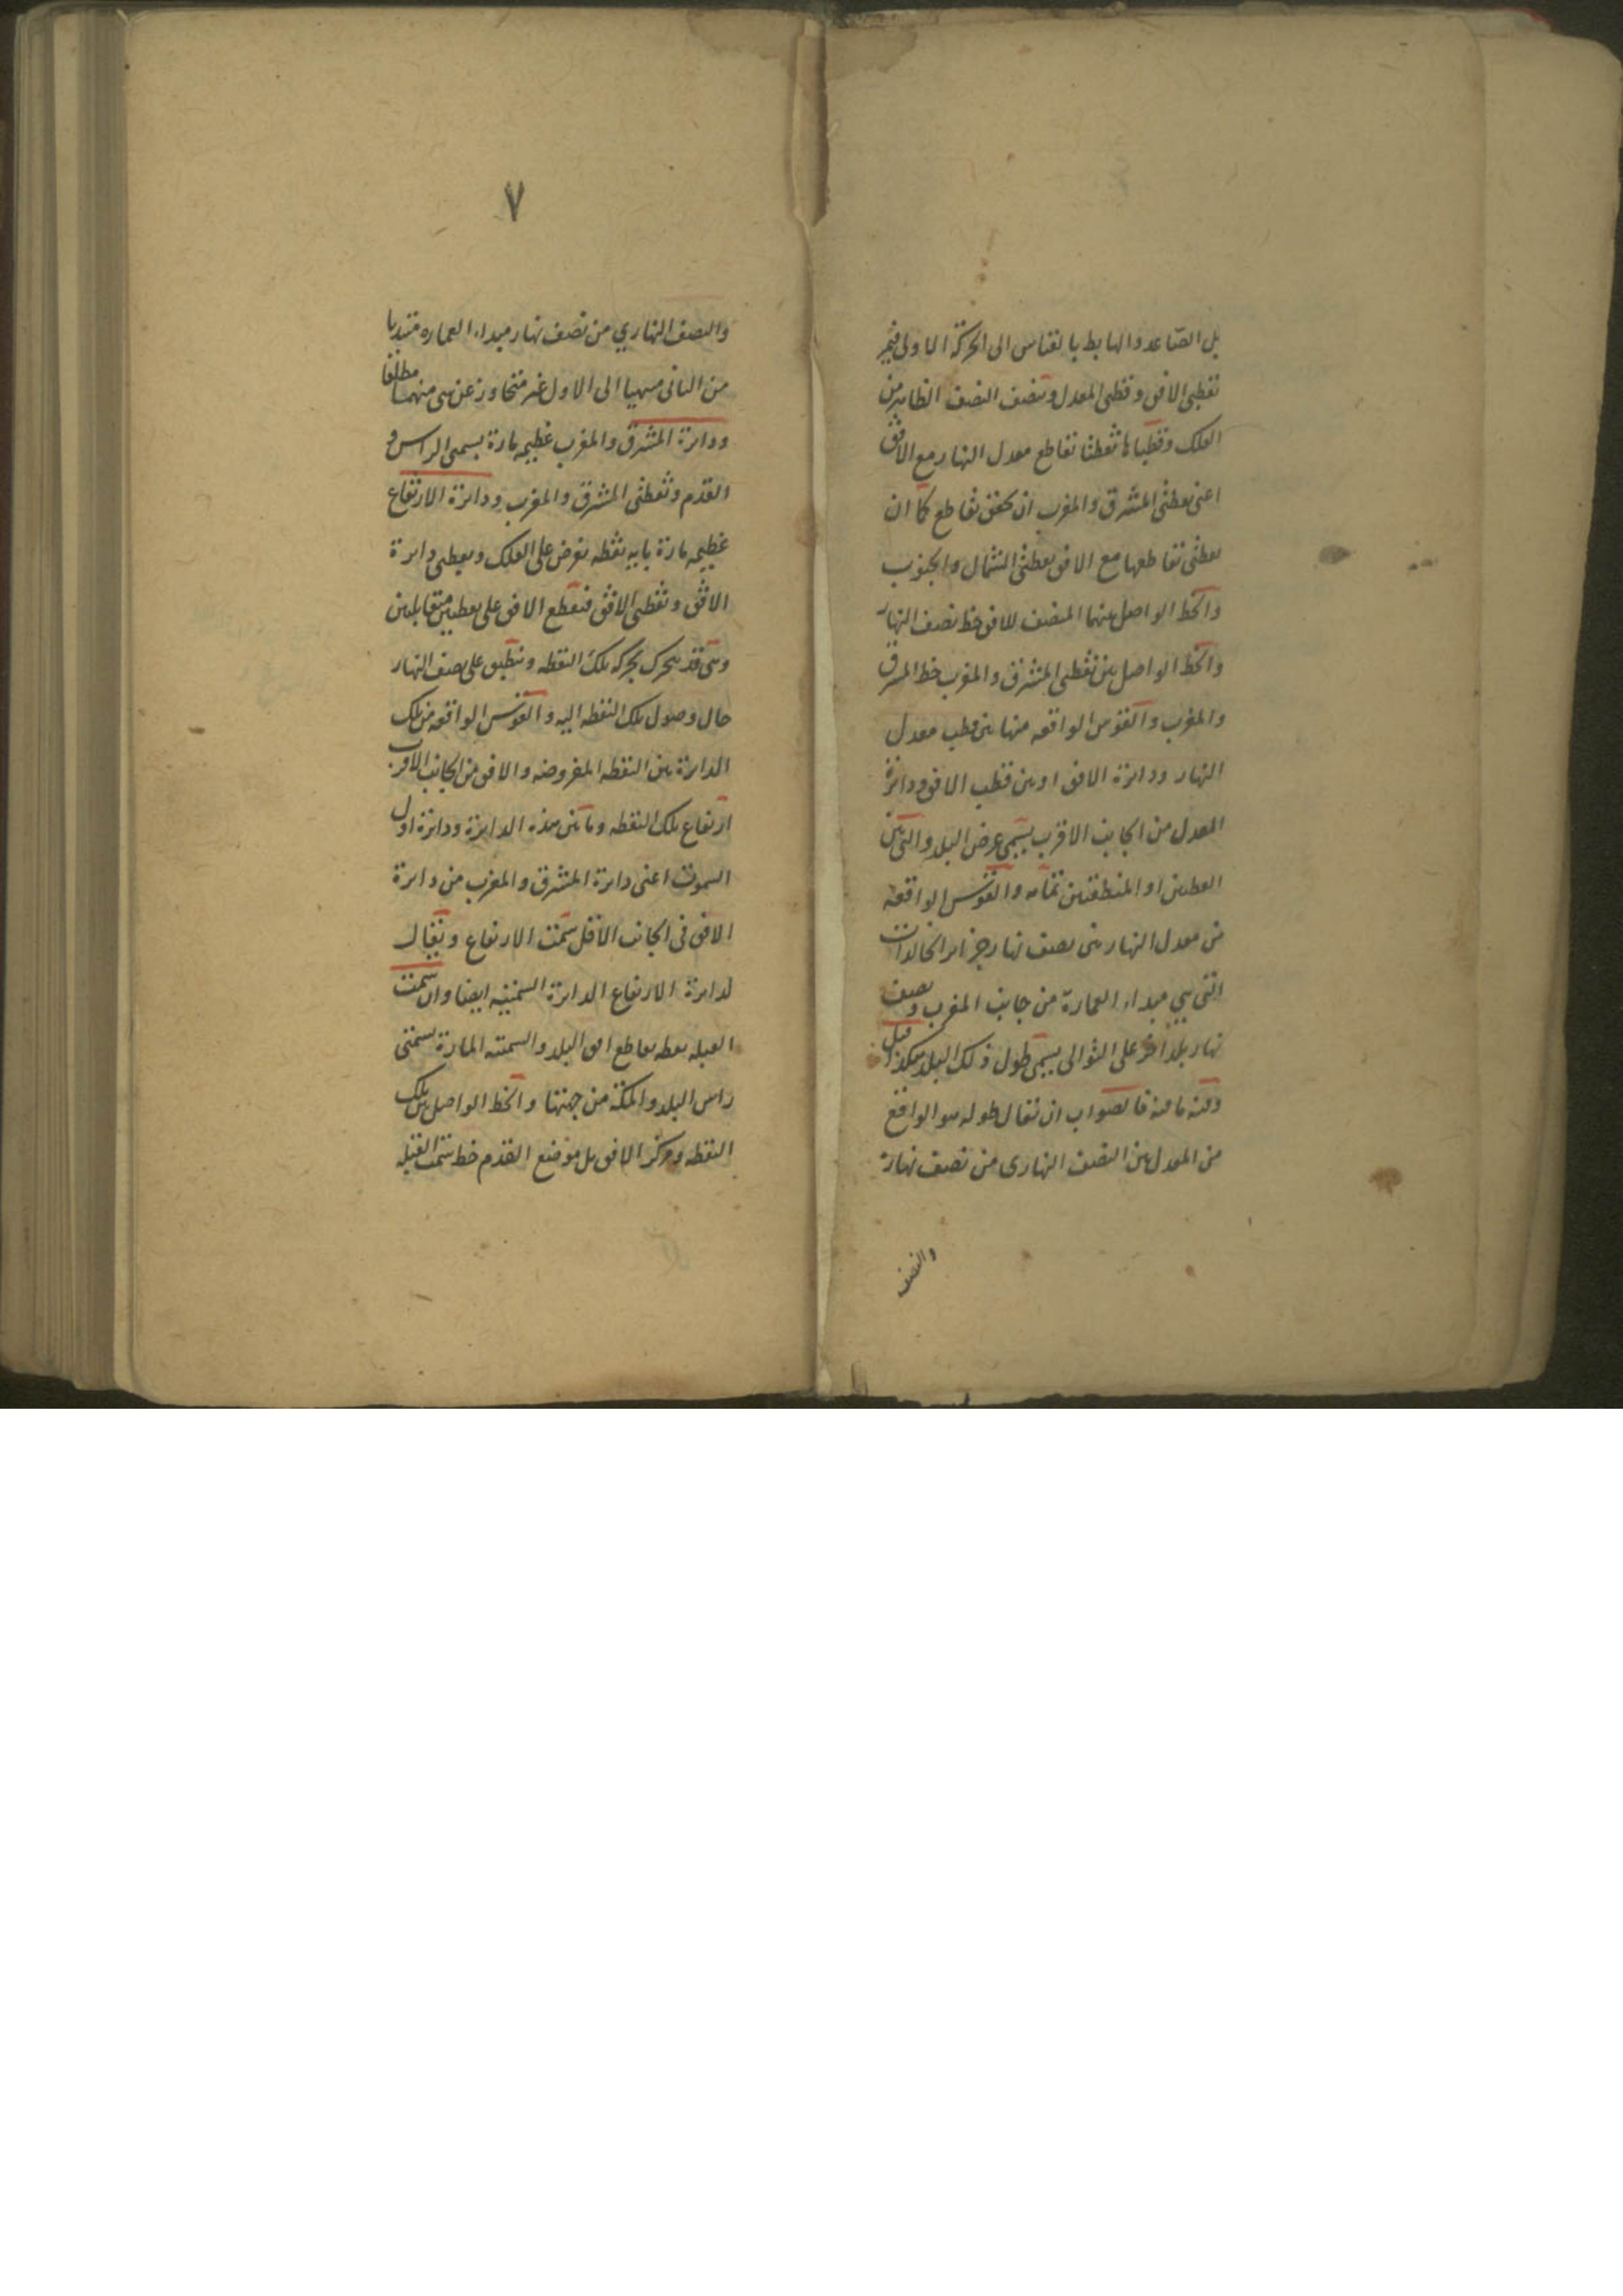 بل الصّاعد والهابط بالقياس الى الحركة الاولى فيمر
بقطبى الافق وقطبى المعدل وتنصف النصف الظاهر من
الفلك وقطباها نقطتا تقاطع معدل النهار مع الافق
اعنى نقطتى المشرق والمغرب ان تحقق تقاطع كما ان
نقطتى تقاطعها مع الافق نقطتى الشمال والجنوب
والخط الواصل بينهما المنصف للافق خط نصف النهار
والخط الواصل بين نقطتى المشرق والمغرب خط المشرق
والمغرب والقوس الواقعه منها بين قطب معدل
النهار ودائرة الافق او بين قطب الافق ودائرة
المعدل من الجانب الاقرب يسمى عرض البلد والتى بين
القطبين او المنطقتين تمامه والقوس الواقعه
من معدل النهار بين نصف نهار جزائر الخالدات
التى هى مبداء العمارة من جانب المغرب ونصف
نهار بلد اخر على التوالى يسمى طول ذلك البلد هكذا قيل
وفيه ما فيه فالصواب ان يقال طوله هو الواقع
من المعدل بين النصف النهارى من نصف نهاره
والنصف
٧
والنصف النهاري من نصف نهار مبداء العماره مبتديا
من الثانى منتهيا الى الاول غير متجاوز عن شى منهما مطلقا
ودائرة المشرق والمغرب عظيمه مارة بسمتى الراس و
القدم ونقطتى المشرق والمغرب ودائرة الارتفاع
عظيمه مارة باية نقطه تفرض على الفلك وبقطبى دائرة
الافق وبقطبى الافق فتقطع الافق على نقطتين متقابلتين
وهى قد تتحرك بحركه تلك النقطه وتنطبق على نصف النهار
حال وصول تلك النقطه اليه والقوس الواقعه من تلك
الدائرة بين النقطه المفروضه والافق من الجانب الاقرب
ارتفاع تلك النقطه وما بين هذه الدائرة ودائرة اول
السموت اعنى دائرة المشرق والمغرب من دائرة
الافق فى الجانب الاقل سمت الارتفاع ويقال
لدائرة الارتفاع الدائرة السمتيه ايضا وان سمت
القبله نقطه تقاطع افق البلد والسمتيه المارة بسمتى
راس البلد والمكة من جهتها والخط الواصل بين تلك
النقطه ومركز الافق بل موضع القدم خط سمت القبله